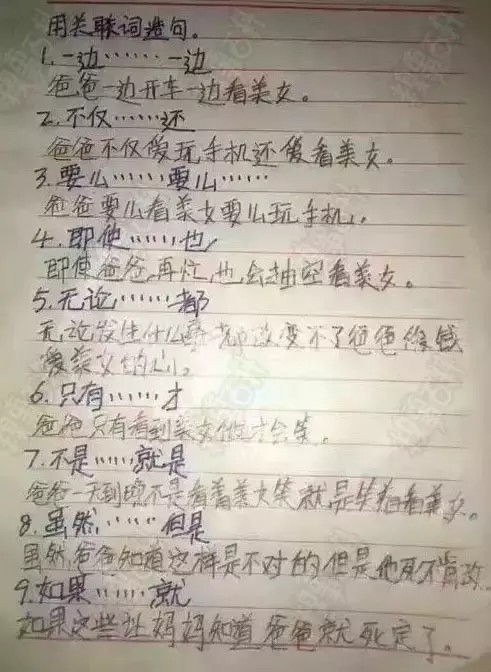 用关联词造句。
1.一边……一边
爸爸一边开车一边看美女。
2.不仅……还
爸爸不仅爱玩手机还爱看美女。
3.要么……要么……
爸爸要么看美女要么玩手机。
4.即使……也
即使爸爸再忙,也会抽空看美女。
5.无论……都
无论发生什么事都改变不了爸爸
爱美女的心。
6.只有……才
爸爸只有看到美女他才会笑。
7.不是……就是
爸爸一天到晚不是看着美女笑就是笑着看美女。
8.虽然……但是
虽然爸爸知道这样是不对的但是他死不肯改.
9.如果……就
如果这些让妈妈知道爸爸就死定了。